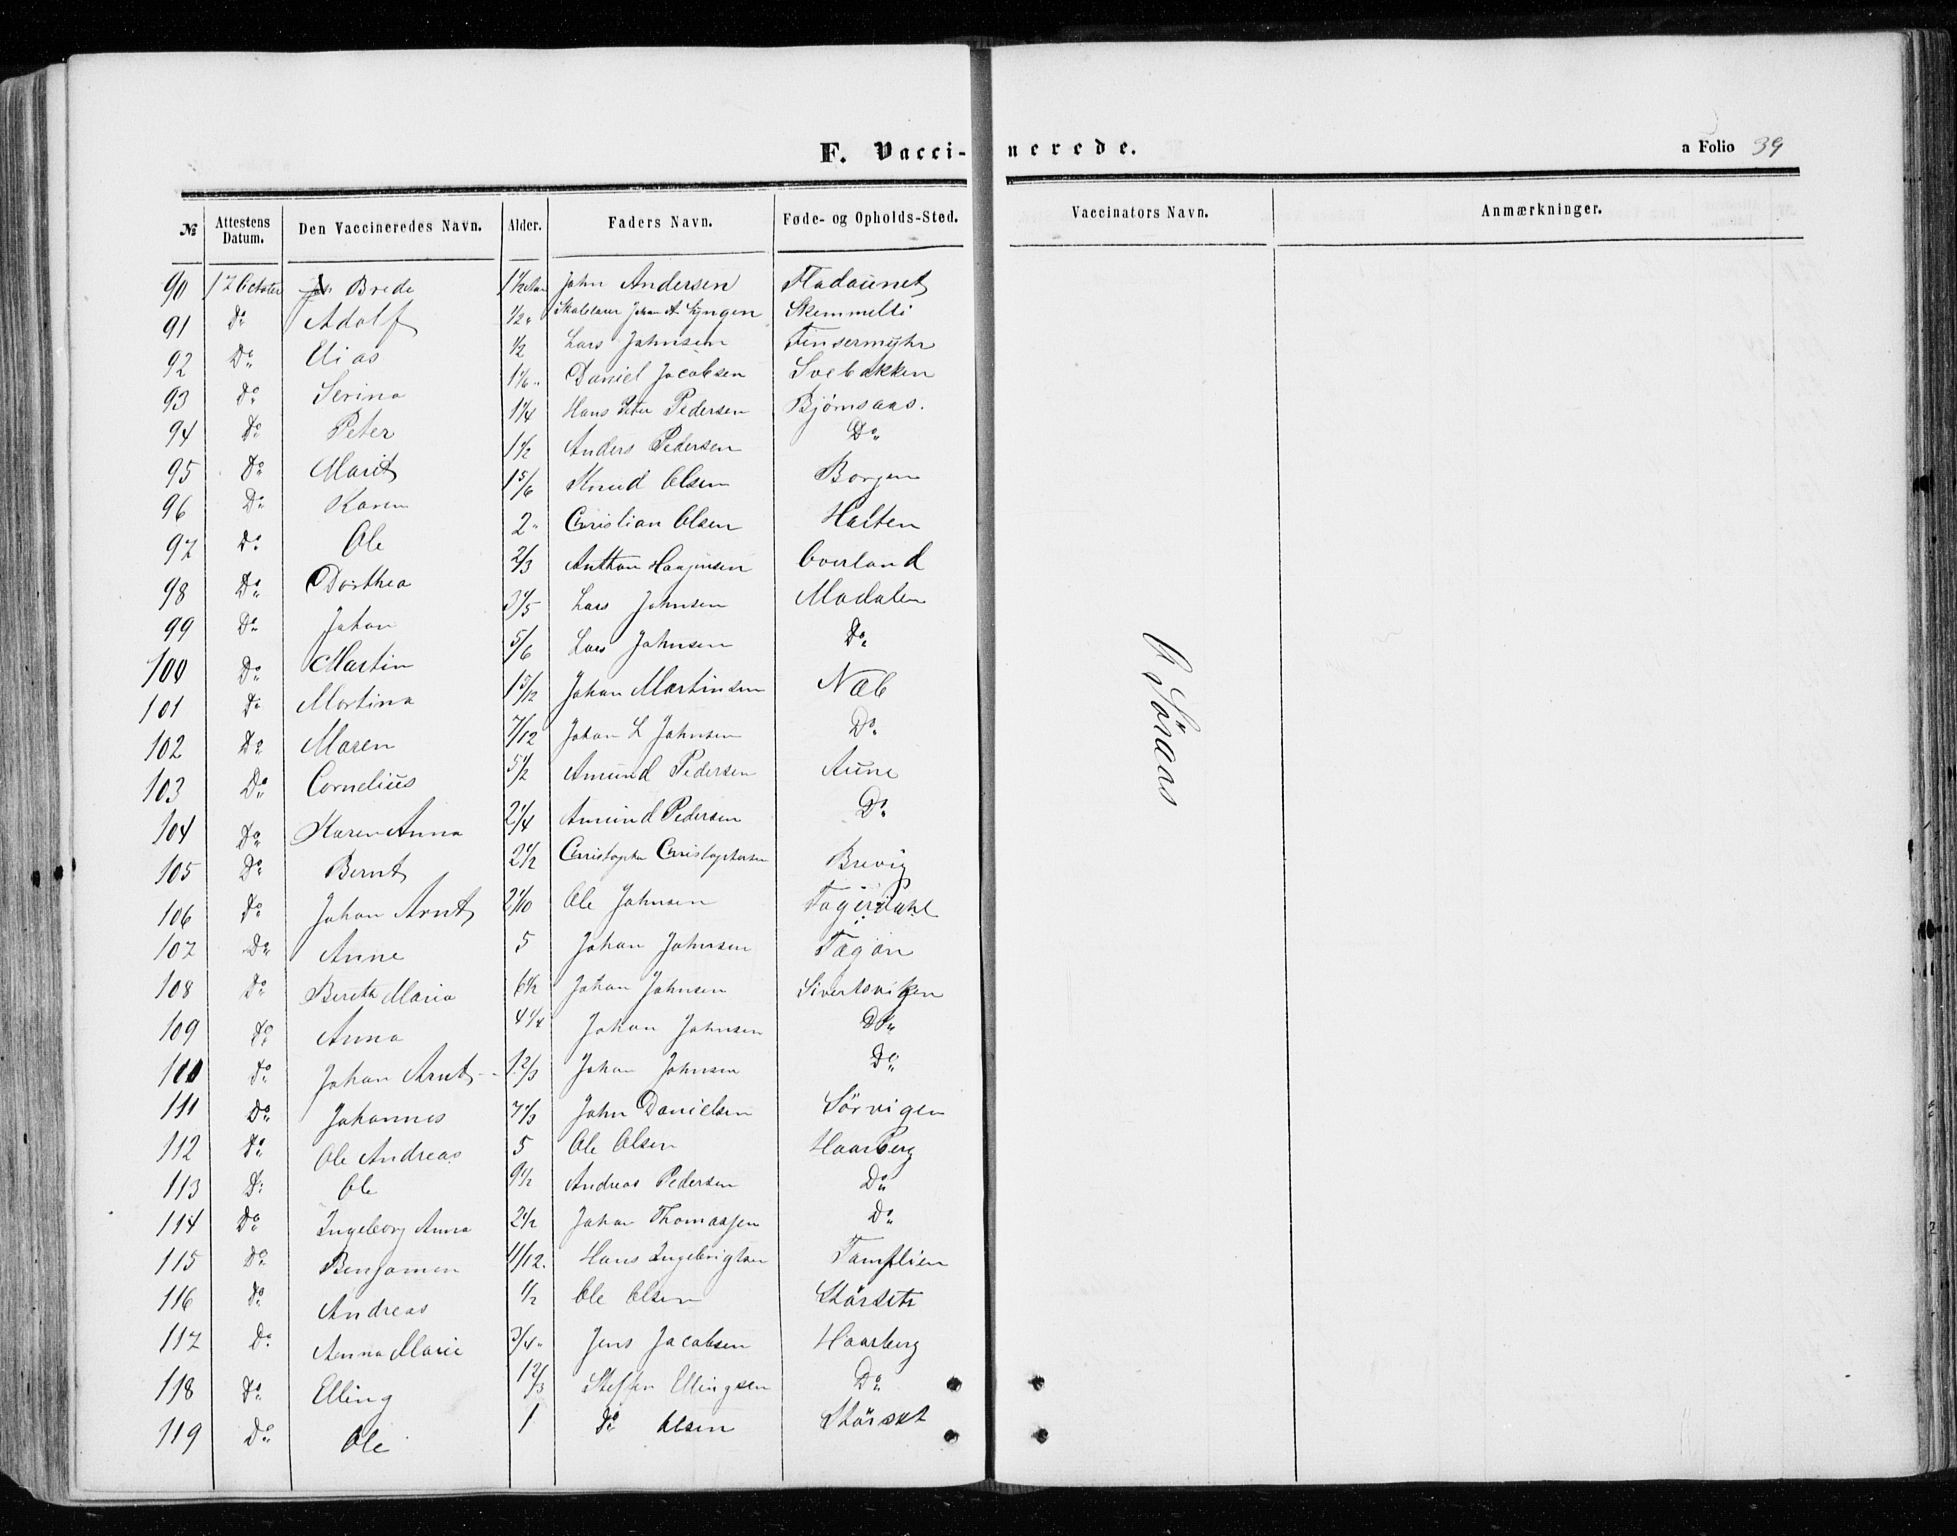 F. Vaccinerede.
a Folio 39
№ Attestens Datum. Den Vaccineredes Navn. Alder. Faders Navn. Føde- og Opholds-Sted. Vaccinators Navn. Anmærkninger.
90 17 October Brede 1 1/2 Aar John Andersen Fladaunet
91 Do Adolf 1/2 " Johan A Lyngen Skemmelli
92 Do Elias 1/2 Lars Johnsen
93 Do Serina 1 1/6 " Daniel Jacobsen Svebakken
94 Do Peter 1 1/4 Hans Peter Pedersen Bjørnsaas.
95 Do Marit 1 1/2 Anders Pedersen Do
96 Do Karen 1 5/6 Knud Olsen Borgen
97 Do Ole 2 " Christian Olsen Halten
98 Do Dorthea 2/3 Anthon Haagensen Overland
99 Do Johan 3 1/5 Lars Johnsen Madalen
100 Do Martin 5/6 Lars Johnsen Do
101 Do Martina 1 5/12 Johan Martinsen Næb
102 Do Maren 7/12 Johan L Johnsen Do
103 Do Cornelius 5 1/2 Amund Pedersen Aune
104 Do Karen Anna 2 1/4 Amund Pedersen Do
105 Do Bernt 2 1/2 Christopher Christophersen Brevig
106 Do Johan Arnt 2 1/10 Ole Johnsen
107 Do Anne 5 Johan Johnsen
108 Do Bereth Maria 6 1/2 Johan Johnsen Sivertsviken
109 Do Anna 4 1/4 Johan Johnsen Do
110 Do Johan Arnt 1 2/3 Johan Johnsen Do
111 Do Johannes 7 1/3 John Danielsen Sörvigen
112 Do Ole Andreas 5 Ole Olsen Haarberg
113 Do Ole 9 1/2 Andreas Pedersen Do
114 Do Ingeborg Anna 2 1/2 Johan Thomassen Do
115 Do Benjamen 11/12. Hans Ingebrigtsen Tamflien
116 Do Andreas 1/2 Ole Olsen Störseth
117 Do Anna Marie 3/4 " Jens Jacobsen Haarberg
118 Do Elling 1 2/3 Steffen Ellingsen Do
119 Do Ole 1 Do Olsen Störset
Söraas